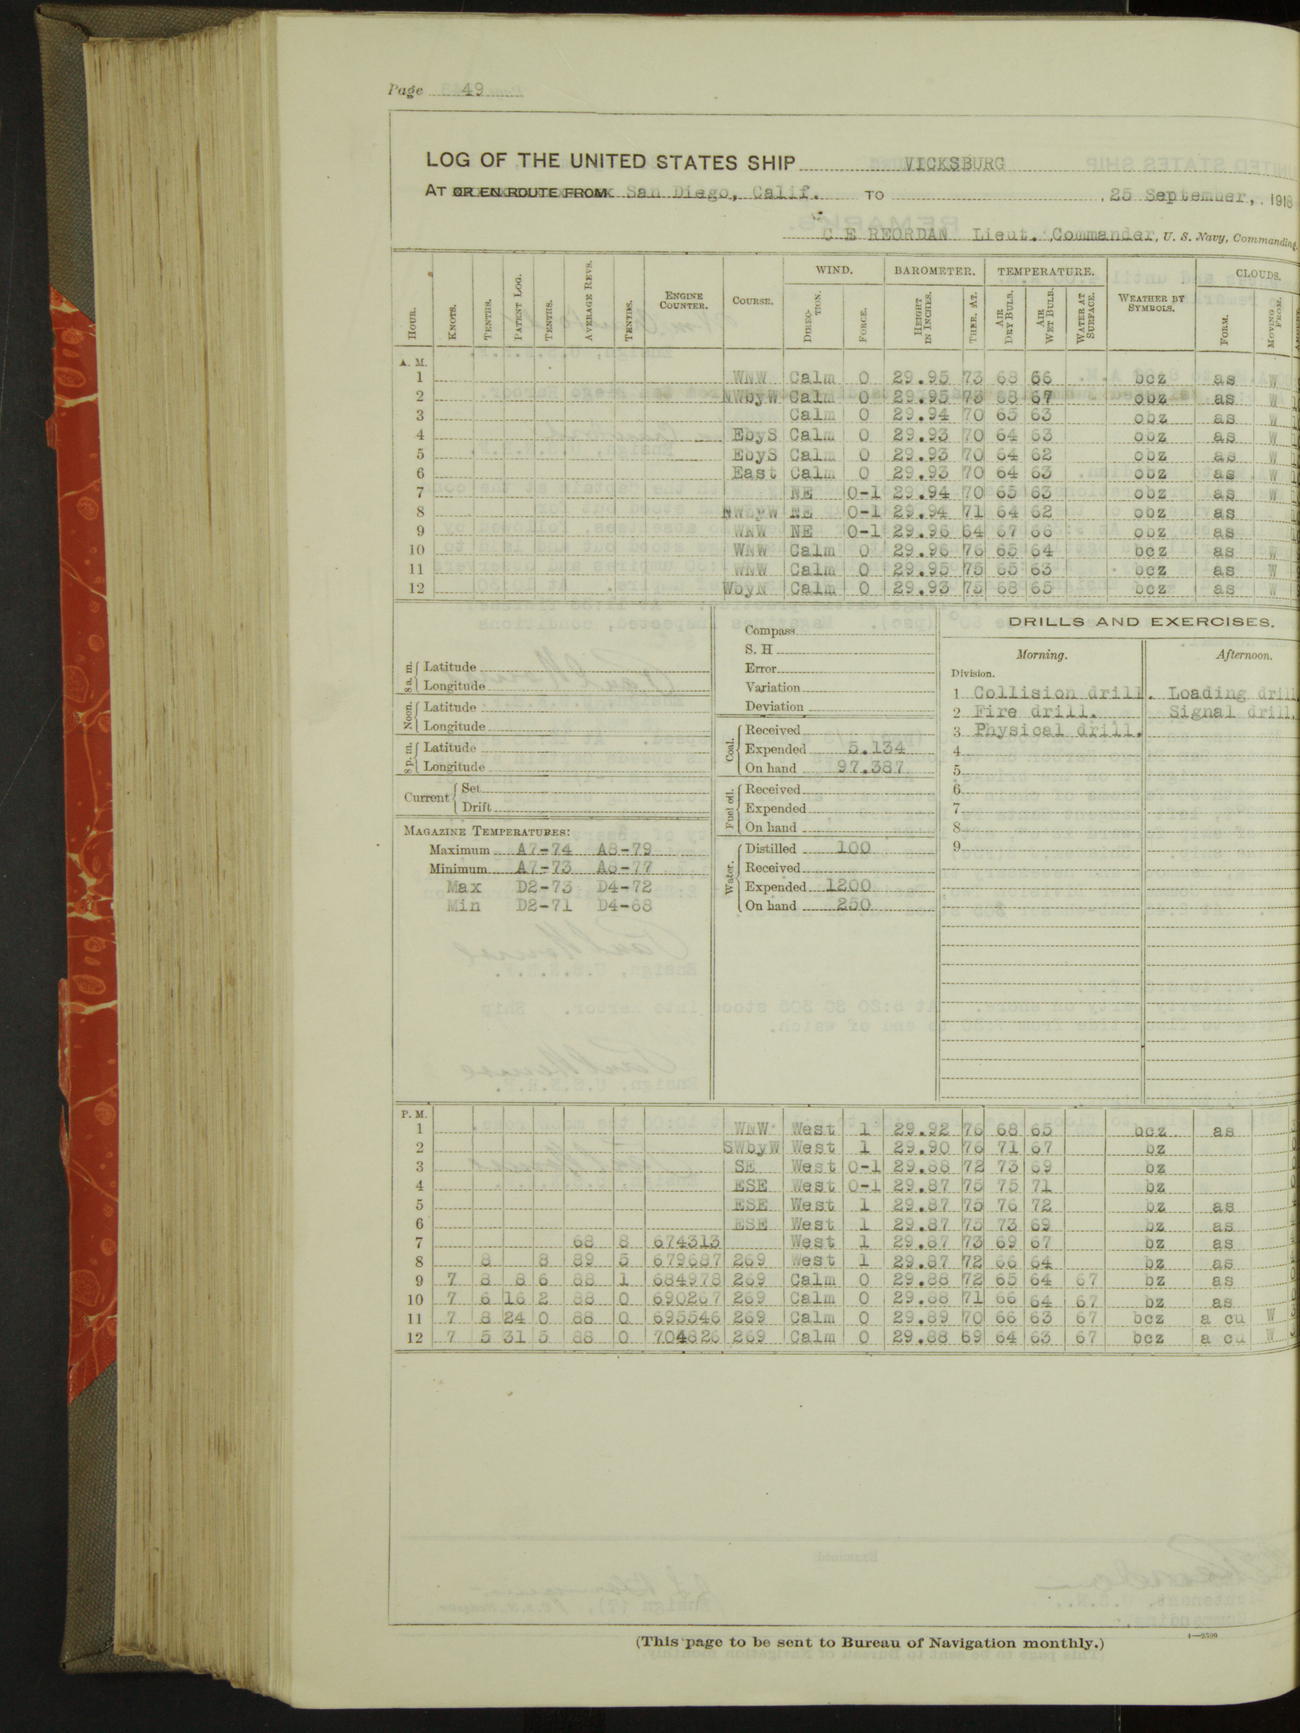 Page 49
LOG OF THE UNITED STATES SHIP VICKSBURG
AT OR EN ROUTE FROM San Diego, Calif. TO 25 September, 1918
C E REORDAN Lieut. Commander, U. S. Navy, Commanding.
HOUR. KNOTS. TENTHS. PATENT LOG. TENTHS. AVERAGE REVS. TENTHS. ENGINE COUNTER. COURSE. WIND. DIRECTION. FORCE. BAROMETER. HEIGHT IN INCHES. THER. AT. TEMPERATURE. AIR DRY BULB. AIR WET BULB. WATER AT SURFACE. WEATHER BY SYMBOLS. CLOUDS. FORM. MOVING FROM.
A. M.
1 WNW Calm 0 29.95 73 68 66 bcz as W
2 NWbyW Calm 0 29.95 73 68 67 obz as W
3 Calm 0 29.94 70 65 63 obz as W
4 EbyS Calm 0 29.93 70 64 63 obz as W
5 EbyS Calm 0 29.93 70 64 62 obz as W
6 East Calm 0 29.93 70 64 63 obz as W
7 NE 0-1 29.94 70 65 63 obz as W
8 NWbyW NE 0-1 29.94 71 64 62 obz as
9 WNW NE 0-1 29.96 64 67 66 obz as
10 WNW Calm 0 29.96 76 65 64 bcz as W
11 WNW Calm 0 29.95 75 65 63 bcz as W
12 WbyN Calm 0 29.93 75 68 65 bcz as
8 a. m. Latitude
Longitude
Noon. Latitude
Longitude
8 p. m. Latitude
Longitude
Current Set
Drift
MAGAZINE TEMPERATURES:
Maximum A7-74 A8-79
Minimum A7-73 A8-77
Max D2-73 D4-72
Min D2-71 D4-68
Compass
S. H
Error
Variation
Deviation
Coal. Received
Expended 5.134
On hand 97.387
Fuel oil. Received
Expended
On hand
Water. Distilled 100
Received
Expended 1200
On hand 250
DRILLS AND EXERCISES.
Morning. Afternoon.
Division.
1 Collision drill. Loading drill
2 Fire drill. Signal drill.
3 Physical drill.
4
5
6
7
8
9
P. M.
1 WNW West 1 29.92 76 68 65 bcz as
2 SWbyW West 1 29.90 76 71 67 bz
3 SE West 0-1 29.88 72 73 69 bz
4 ESE West 0-1 29.87 75 75 71 bz
5 ESE West 1 29.87 75 76 72 bz as
6 ESE West 1 29.87 75 73 69 bz as
7 68 8 674313 West 1 29.87 73 69 67 bz as
8 8 8 89 5 679687 269 West 1 29.87 72 66 64 bz as
9 7 8 8 6 88 1 684978 269 Calm 0 29.88 72 65 64 67 bz as
10 7 6 16 2 88 0 690267 269 Calm 0 29.88 71 66 64 67 bz as
11 7 8 24 0 88 0 695546 269 Calm 0 29.89 70 66 63 67 bcz a cu W
12 7 5 31 5 88 0 704826 269 Calm 0 29.88 69 64 63 67 bcz a cu W
(This page to be sent to Bureau of Navigation monthly.)